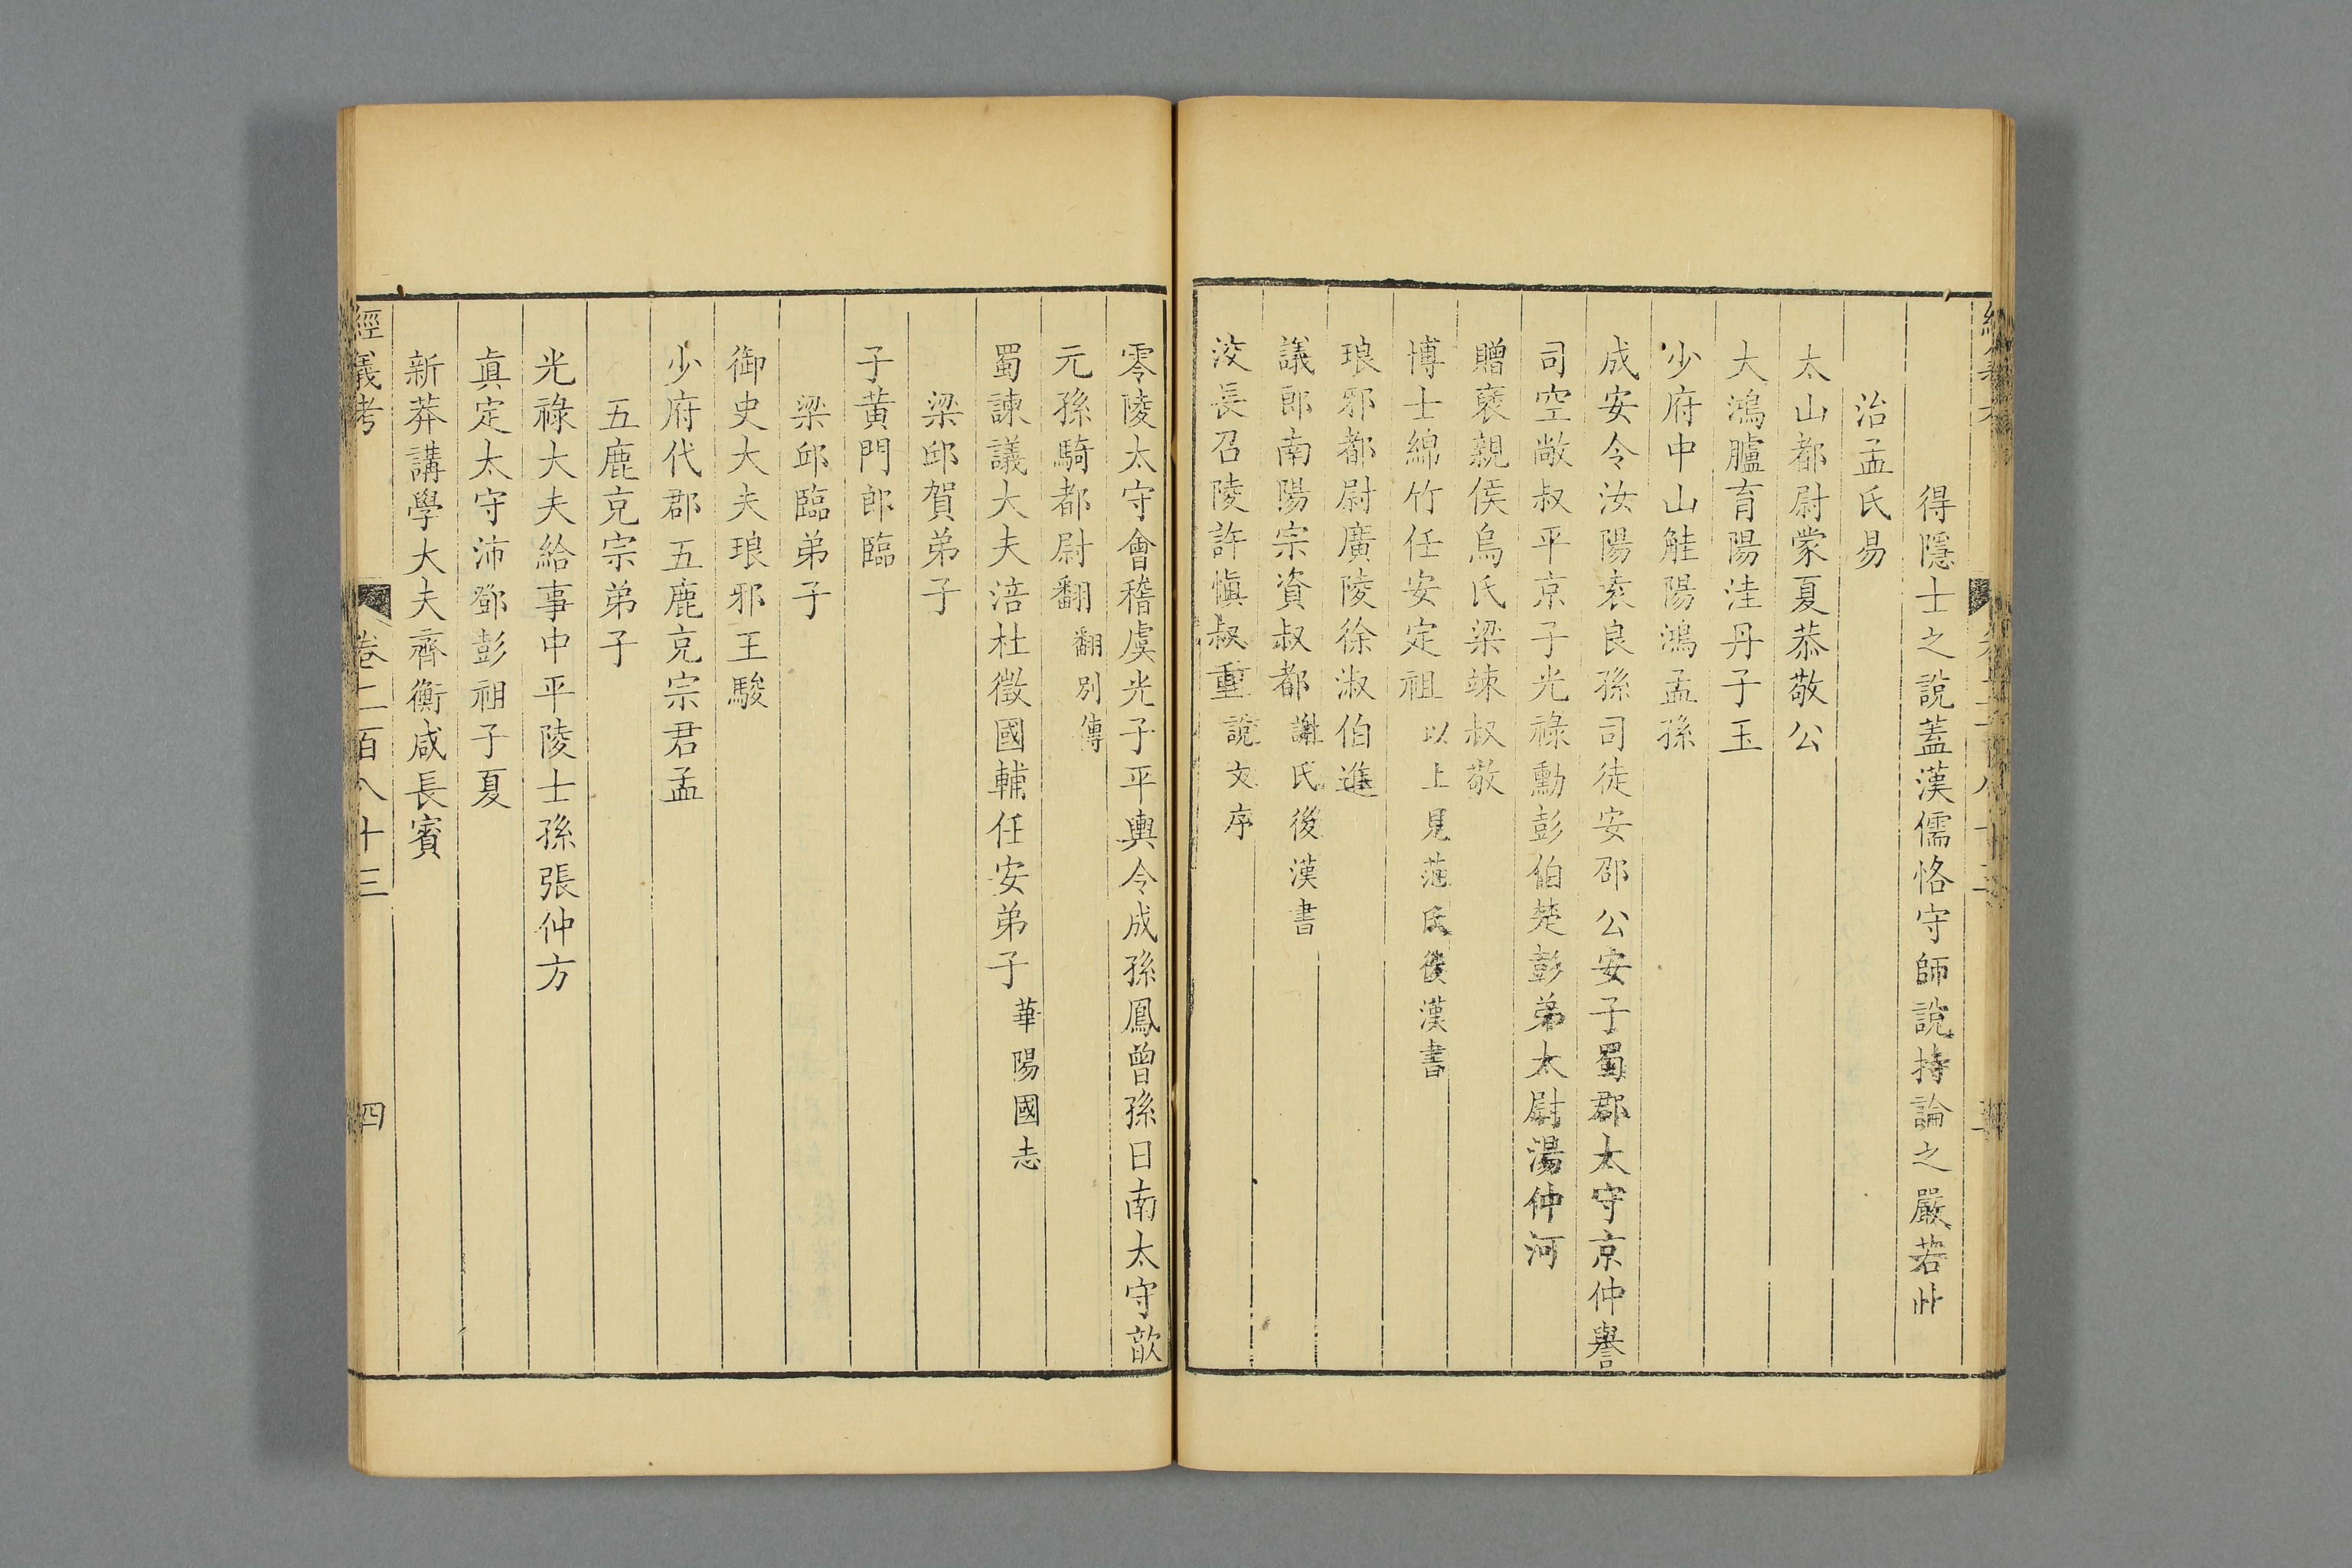 得隱士之說蓋漢儒恪守師說持論之嚴若此
治孟氏易
太山都尉蒙夏恭敬公
大鴻臚育陽洼丹子玉
少府中山觟陽鴻孟孫
成安令汝陽袁良孫司徒安邵公安子蜀郡太守京仲譽
司空敞叔平京子光祿勳彭伯楚彭弟太尉湯仲河
贈褒親侯烏氏梁竦叔敬
博士綿竹任安定祖 以上見范氏後漢書
琅邪都尉廣陵徐淑伯進
議郎南陽宗資叔都 謝氏後漢書
洨長召陵許慎叔重 說文序
零陵太守會稽虞光子平輿令成孫鳳曾孫日南太守歆
元孫騎都尉翻 翻別傳
蜀諫議大夫涪杜微國輔任安弟子 華陽國志
梁邱賀弟子
子黃門郎臨
梁邱臨弟子
御史大夫琅邪王駿
少府代郡五鹿充宗君孟
五鹿充宗弟子
光祿大夫給事中平陵士孫張仲方
真定太守沛鄧彭祖子夏
新莽講學大夫齊衡咸長賓
經義考 卷二百八十三 四